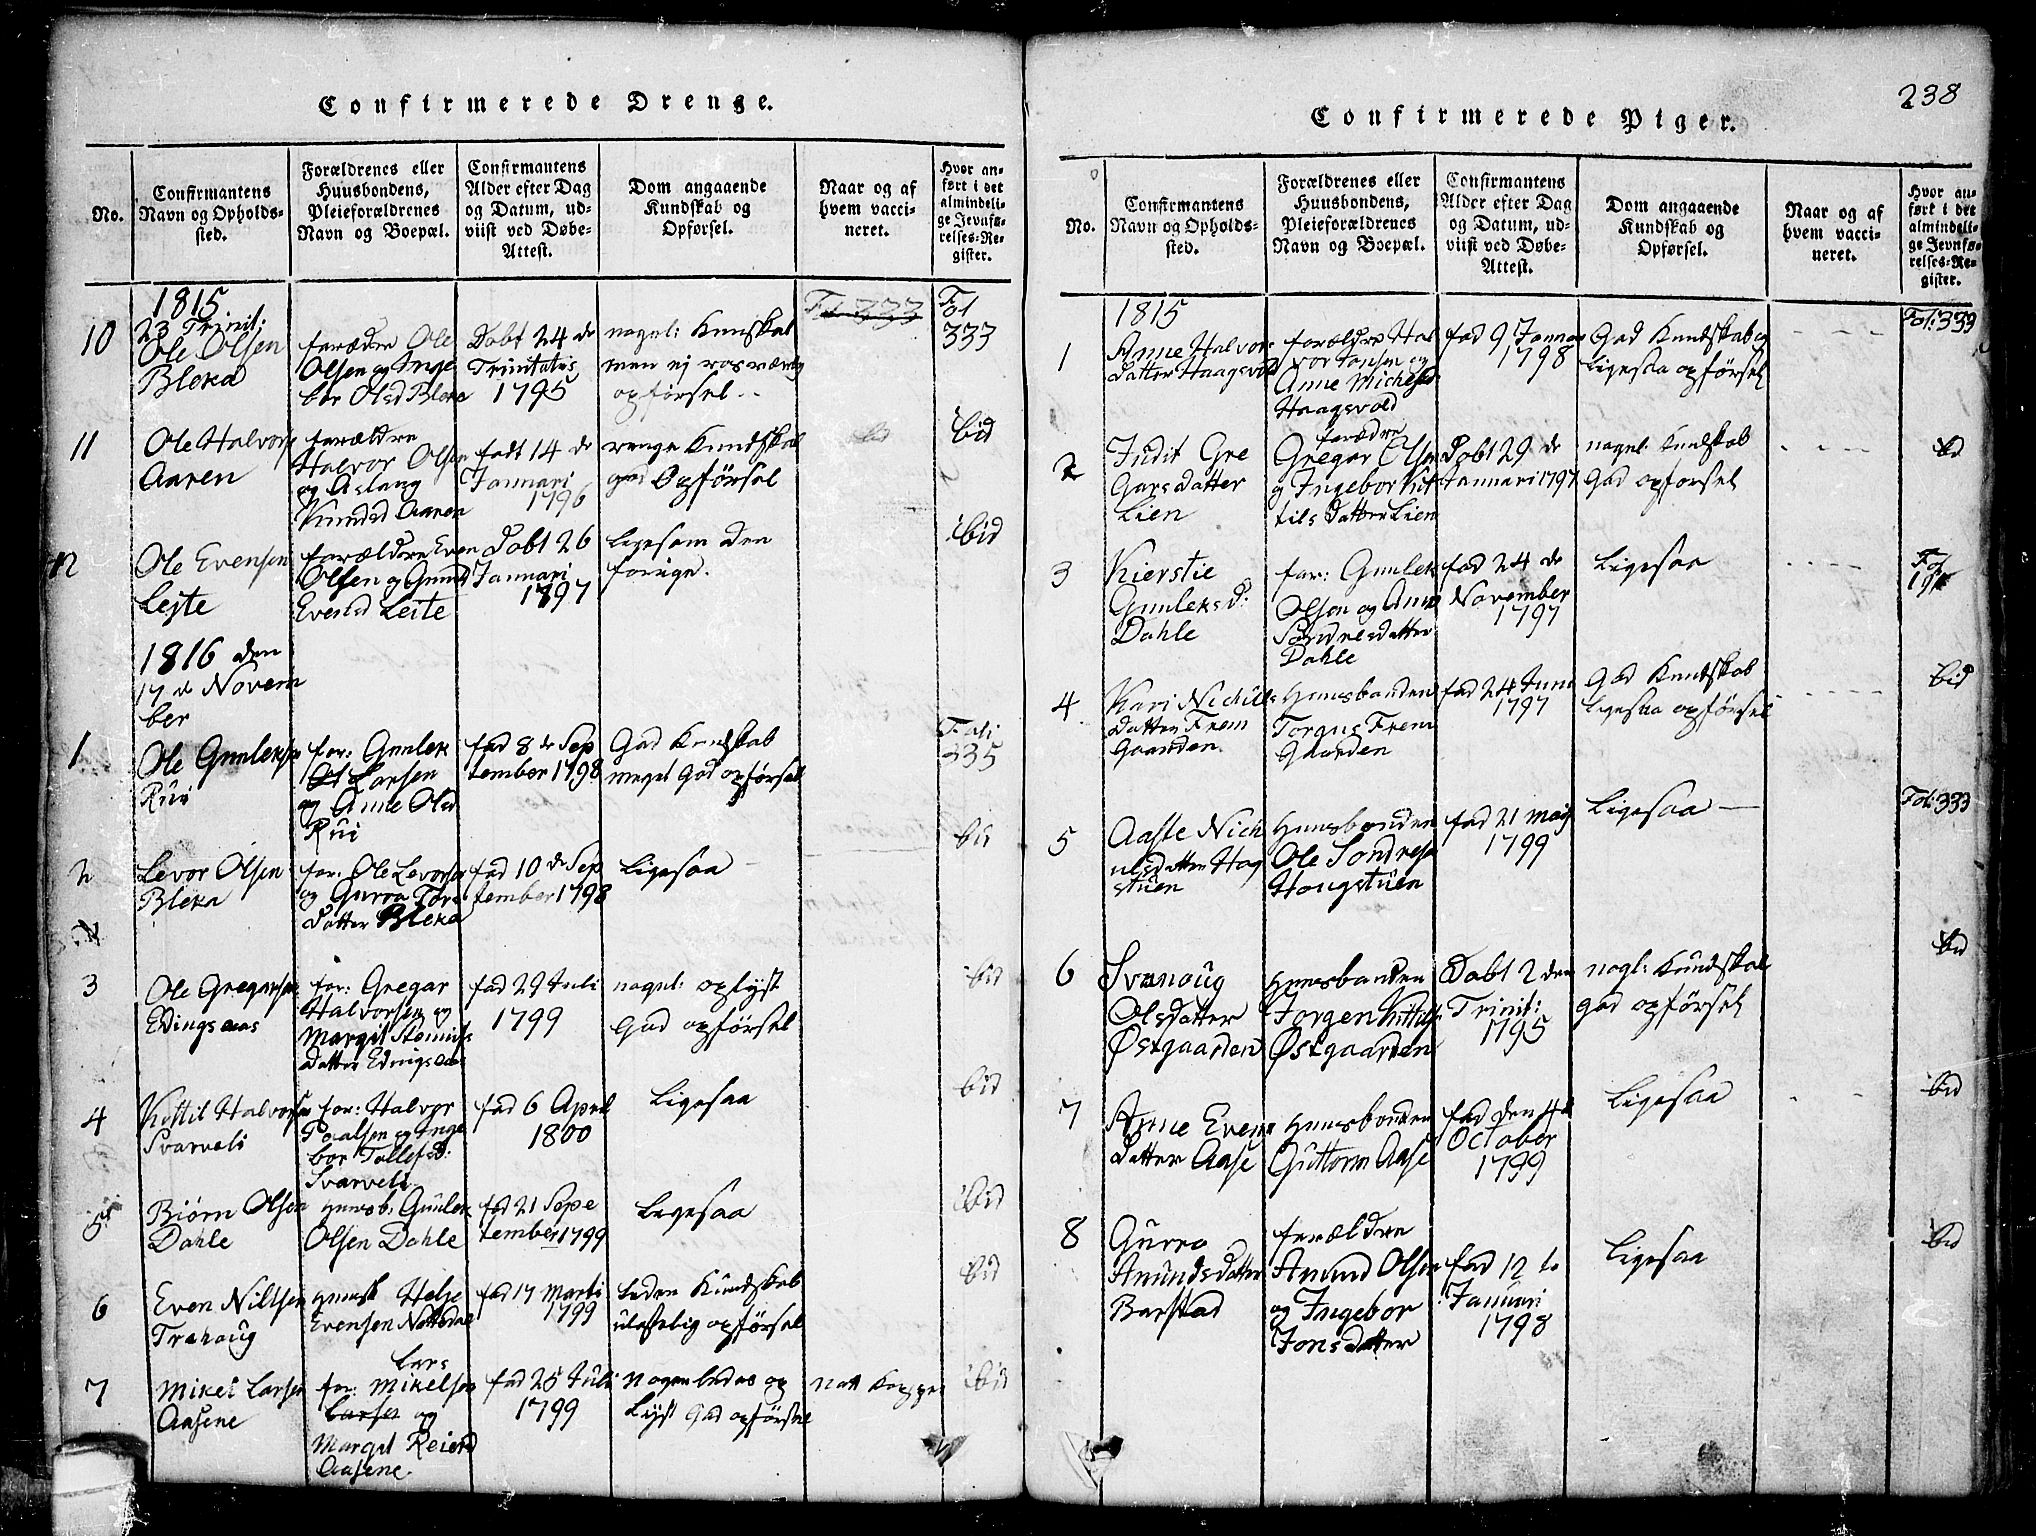 Confirmerede Drenge.
No.
Confirmantens
Navn og Opholds-
sted.
Forældrenes eller
Huusbondens,
Pleieforældrenes
Navn og Boepæl.
Confirmantens
Alder efter Dag
og Datum, ud-
viist ved Døbe-
Attest.
Dom angaaende
Kundskab og
Opførsel.
Naar og af
hvem vacci-
neret.
Hvor an-
ført i det
almindeli-
ge Jevnfø-
relses-Re-
gister.
1815
23 Trinit:
10
Ole Olsen
Bleka
forældre Ole
Olsen og Inge
bor Olsd Bleka
Døbt 24 de
Trinitatis
1795
nogul: Kunskab
men ej rosværdig
opførsel
Fol 333
Fol
333
11
Ole Halvors
Aaren
forældre
Halvor Olsen
og Aslaug
Knudsd Aaren
født 14 de
Januari
1796
ringe Kundskab
god Opførsel
bid
ibid
12
Ole Evensen
Lejte
forældre Even
Olsen og Gunild
Evensd Leite
Døbt 26
Januari
1797
ligesom den
forrige.
ibid
1816 den
17 de Novem
ber
1
Ole Gunleksen
Rui
for: Gunlek
Larsen
og Anne Olsd
Rui
fød 8 de Sep
tember 1798
God Kundskab
meget God opførsel
Foli
335
2
Levor Olsen
Bleka
for: Ole Levorsen
og Gurro Tors
datter Bleka
fød 10 de Sep
tember 1798
Ligesaa
bid
3
Ole Gregarsen
Edingsaas
for: Gregar
Halvorsen og
Margit
datter Edingsaas
fød 29 Juli
1799
nogul: oplyst
God opførsel
ibid
4
Kittil Halvorsen
Svarveli
for: Halvor
Paalsen og Inge
bor Tollefsd:
Svarveli
fød 6 April
1800
Ligesaa
ibid
5
Biørn Olsen
Dahle
Huusb: Gunlek
Olsen Dahle
fød 21 Sepe
tember 1799
Ligesaa
ibid
6
Even Nilssen
Trahaug
Huusb Helje
Evensen
fød 17 Marti
1799
Kundskab
ulastelig opførsel
ibid
7
Mikel Larsen
Aasene
Lars
for: Mikelsen
Larsen og
Margit Reiersd
Aasene.
fød 25 Juli
1799
og
Lyst God opførsel
ibid
238
Confirmerede Piger.
No.
Confirmantens
Navn og Opholds-
sted.
Forældrenes eller
Huusbondens,
Pleieforældrenes
Navn og Boepæl.
Confirmantens
Alder efter Dag
og Datum, ud-
viist ved Døbe-
Attest.
Dom angaaende
Kundskab og
Opførsel.
Naar og af
hvem vacci-
neret.
Hvor an-
ført i det
almindeli-
ge Jevnfø-
relses-Re-
gister.
1815
1
Anne Halvors
datter Haagsvold
forældre Hal
vor Jansen og
Anne Michelsd
Haagsvold
fød 9 Januar
1798
God Kundskab og
Ligesaa opførsel
Fol: 333
2
Judit Gre
garsdatter
Lien
forældre
Gregar Olsen
og Ingebor Kit
tils datter Lien
Døbt 29 de
Januari 1797
nogul: Kundskab
God opførsel
bid
3
Kierstie
Gunleksd:
Dahle
for: Gunlek
Olsen og Anne
Søndresdatter
Dahle
fød 24 de
November
1797
Ligesaa
Fol
4
Kari Nichils
datter Frem
Gaarden
Huusbonden
Torgus Frem
Gaarden
fød 24 Juni
1797
God Kundskab
Ligesaa opførsel
bid
5
Aaste Nich
ulsdatter Hog
stuen
Huusbonden
Ole Sondresen
Hougstuen
fød 21 Maj
1799
Ligesaa
Fol: 333
6
Svanoug
Olsdatter
Østgaarden
Huusbonden
Jorgen Kittils
Østgaarden
Døbt 2 den
Trinit:
1795
nogl: Kundskab
god opførsel
bid
7
Anne Evens
datter Aase
Huusbonden
Guttorm Aase
fød den 4de
October
1799
Ligesaa
bid
8
Gurro
Amundsdatter
Barstad
forældre
Amund Olsen
og Ingebor
Jonsdatter
fød 12 te
Januari
1798
Ligesaa
bid